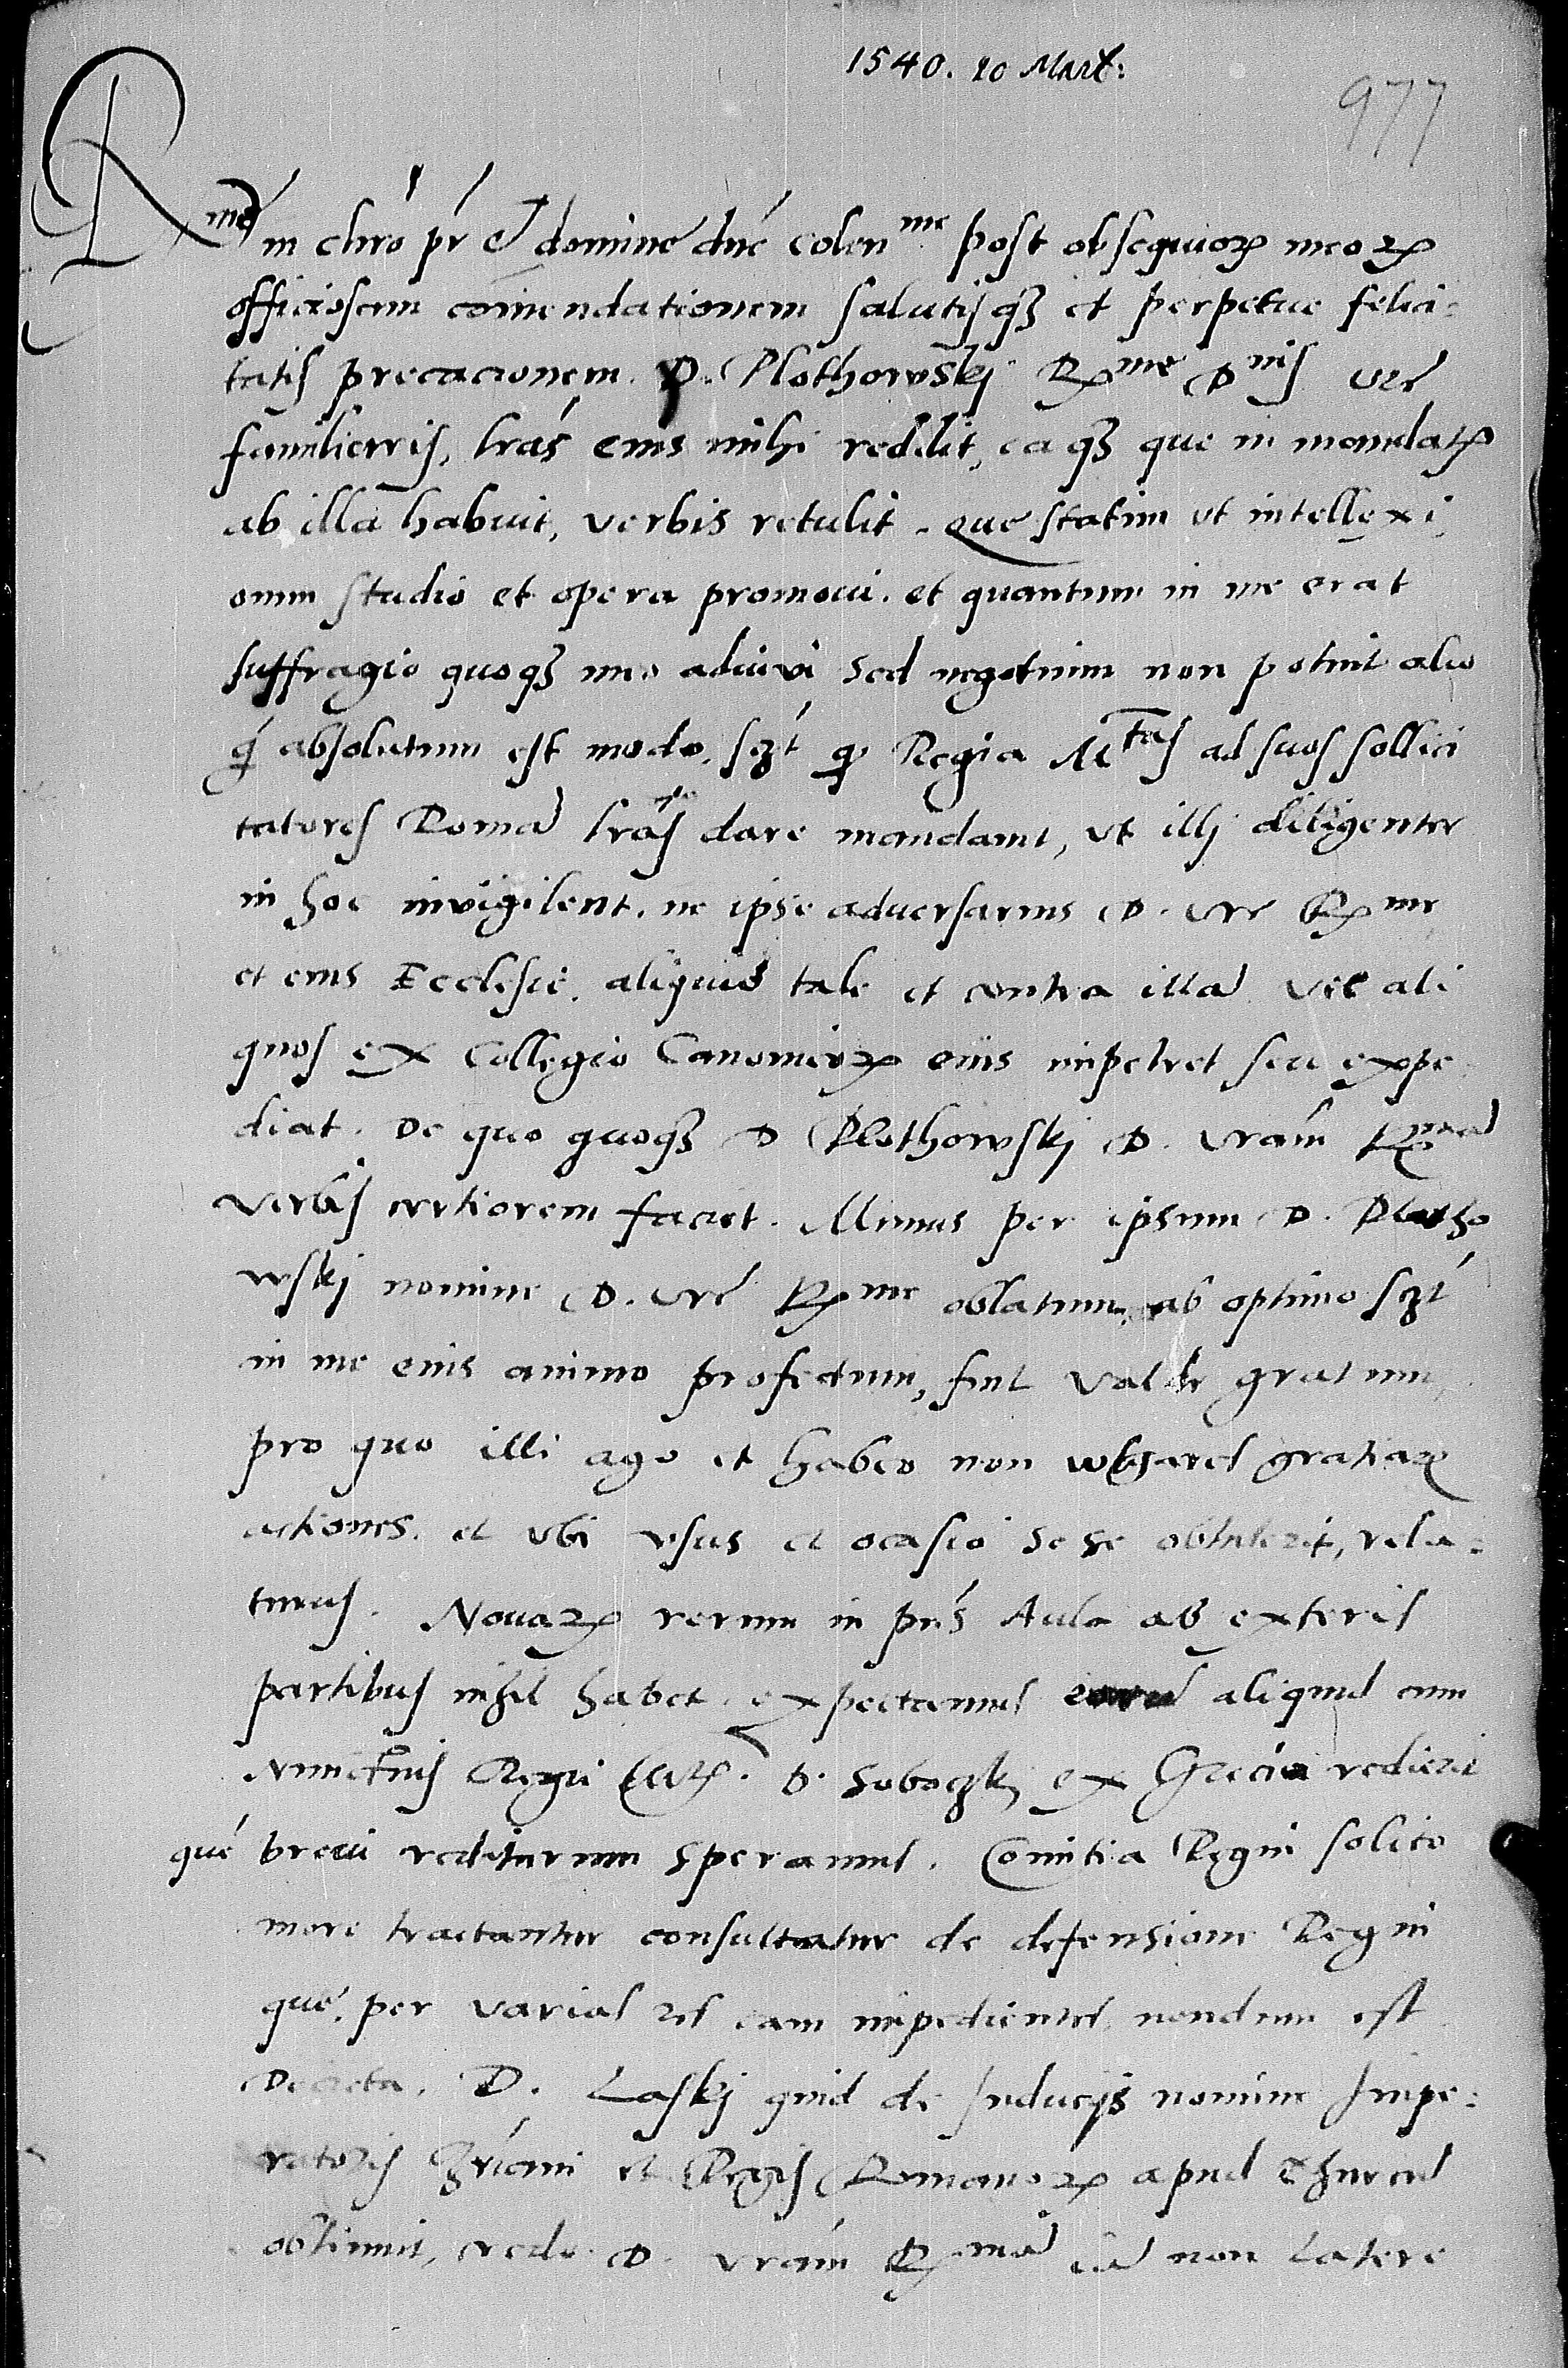 1540. 10 Mart:
977
Rme in chro pr et domine dne colenme post obsequiorum meorum
officiosam comendationem salutisque et perpetue felici-
tatis precacionem. D. Plothowskj Rme Dnis vre
familiaris, lras eius mihi reddit, eaque que in mandatis
ab illa habuit, verbis retulit. que statim ut intellexi,
omni studio et opera promovi. et quantum in me erat
suffragio quoque meo adiuvi sed negotium non potuit alio
q absolutum est modo, scz q Regia Mtas ad suos sollici
tatores Romam lras dare mandavit, ut illj diligenter
in hoc invigilent. ne ipse adversarius D. vre Rme
et eius Ecclesie. aliquid tale et contra illam vel ali
quos ex Collegio Canonicorum eius impetret seu expe
diat. De quo quoque D Plothowskj D. vram Rmam
verbis certiorem faciet. Munus per ipsum D. Plotho
wskj nomine D. vre Rme oblatum, ab optimo scz
in me eius animo profectum, fuit valde gratum,
pro quo illi ago et habeo non vulgares gratiarum
actiones. et ubi usus et ocasio sese obtulerit, rela-
turus. Novarum rerum in pns Aula ab exteris
partibus nihil habet. expectamus aliquid cum
Nunctius Regius D. Soboczkj ex Grecia redierit
que brevi rediturum speramus. Comitia Regni solito
more tractantur consultatur de defensione Regni
que. per varias res eam impedientes nondum est
Decreta. D. Laskj quid de Inducijs nomine Impe-
ratoris et Regis Romanorum apud Thurcum
obtinuit, credo D. vram Rmam id non latere